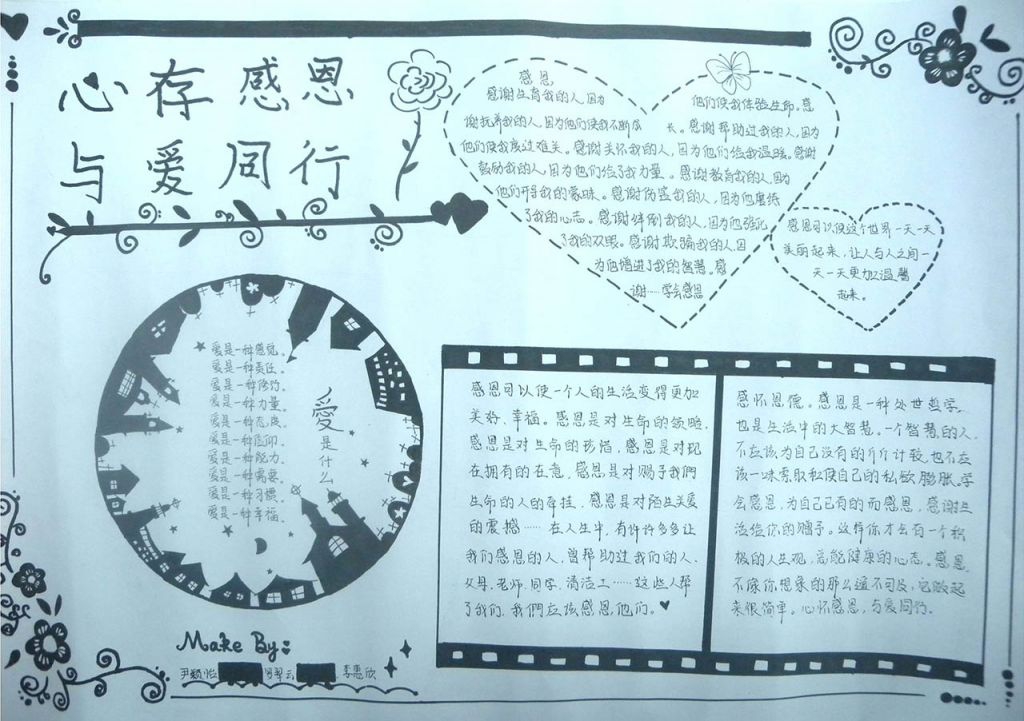 心存感恩
与爱同行
感恩
感谢生育我的人,因为
他们使我体验生命。感
谢抚养我的人,因为他们使我不断成
长。感谢帮助过我的人,因为
他们使我度过难关。感谢关怀我的人,因为他们给我温暖。感谢
鼓励我的人,因为他们给了我力量。感谢教育我的人,因为
他们开导我的蒙昧。感谢伤害我的人,因为他磨练
了我的心志。感谢绊倒我的人,因为他强化
了我的双眼。感谢欺骗我的人,因
为他增进了我的智慧。感
谢……学会感恩
感恩可以使这个世界一天一天
美丽起来,让人与人之间一
天一天更加温馨
起来。
爱是什么
爱是一种感觉。
爱是一种责任。
爱是一种
爱是一种力量。
爱是一种态度。
爱是一种信仰。
爱是一种能力。
爱是一种需要。
爱是一种习惯。
爱是一种幸福。
感恩可以使一个人的生活变得更加
美好,幸福。感恩是对生命的领略,
感恩是对生命的珍惜,感恩是对现
在拥有的在意,感恩是对赐予我們
生命的人的牵挂,感恩是对陌生关爱
的震撼……在人生中,有许许多多让
我们感恩的人,曾帮助过我们的人,
父母,老师,同学,清洁工……这些人帮
了我们,我們应该感恩他们。
感怀恩德。感恩是一种处世哲学,
也是生活中的大智慧。一个智慧的人,
不应该为自己没有的斤斤计较,也不应
该一味索取和使自己的私欲膨胀。学
会感恩,为自己已有的而感恩,感谢生
活给你的赠予。这样你才会有一个积
极的人生观,健康的心态。感恩
不像你想象的那么遥不可及,它做起
来很简单。心怀感恩,与爱同行。
Make By:
尹颖怡
李惠欣